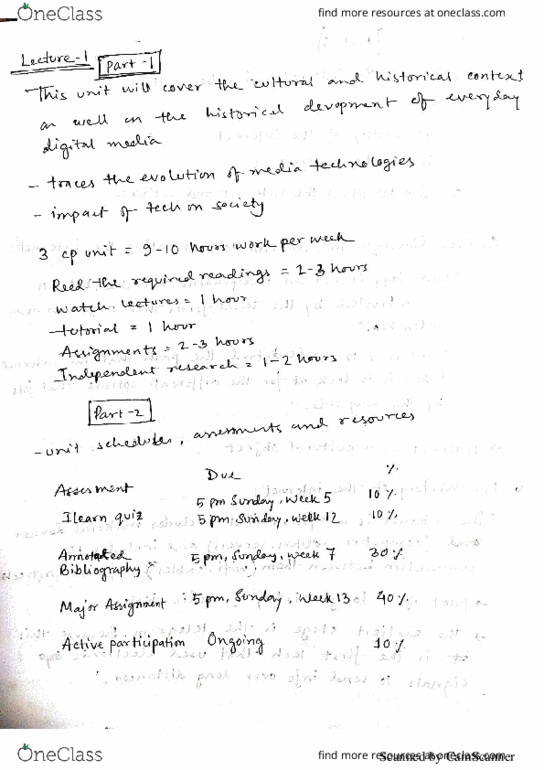 OneClass find more resources at oneclass.com
Lecture-1 Part-1
- This unit will cover the cultural and historical context
as well on the historical devopment of everyday
digital media
- traces the evolution of media technologies
- impact of tech on society
3 cp unit = 9-10 hours work per week
Read the required readings = 2-3 hours
Watch lectures = 1 hour
tutorial = 1 hour
Assignments = 2-3 hours
Independent research = 1-2 hours
Part-2
- unit schedules, assessments and resources
Assesment Due %
Ilearn quiz 5 pm Sunday, Week 5 10%
5 pm Sunday, Week 12 10%
Annotated 5 pm, Sunday, Week 7 30%
Bibliography
Major Assignment : 5 pm, Sunday, Week 13 40%
Active participation Ongoing 10%
OneClass find more resources at oneclass.com
Scanned by CamScanner